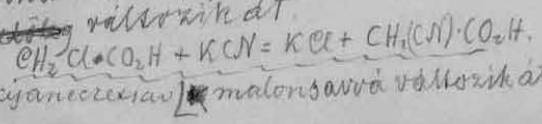 változik át.
CH₂Cl•CO₂H + KCN = KCl + CH₂(CN)·CO₂H.
malonsavvá változik át